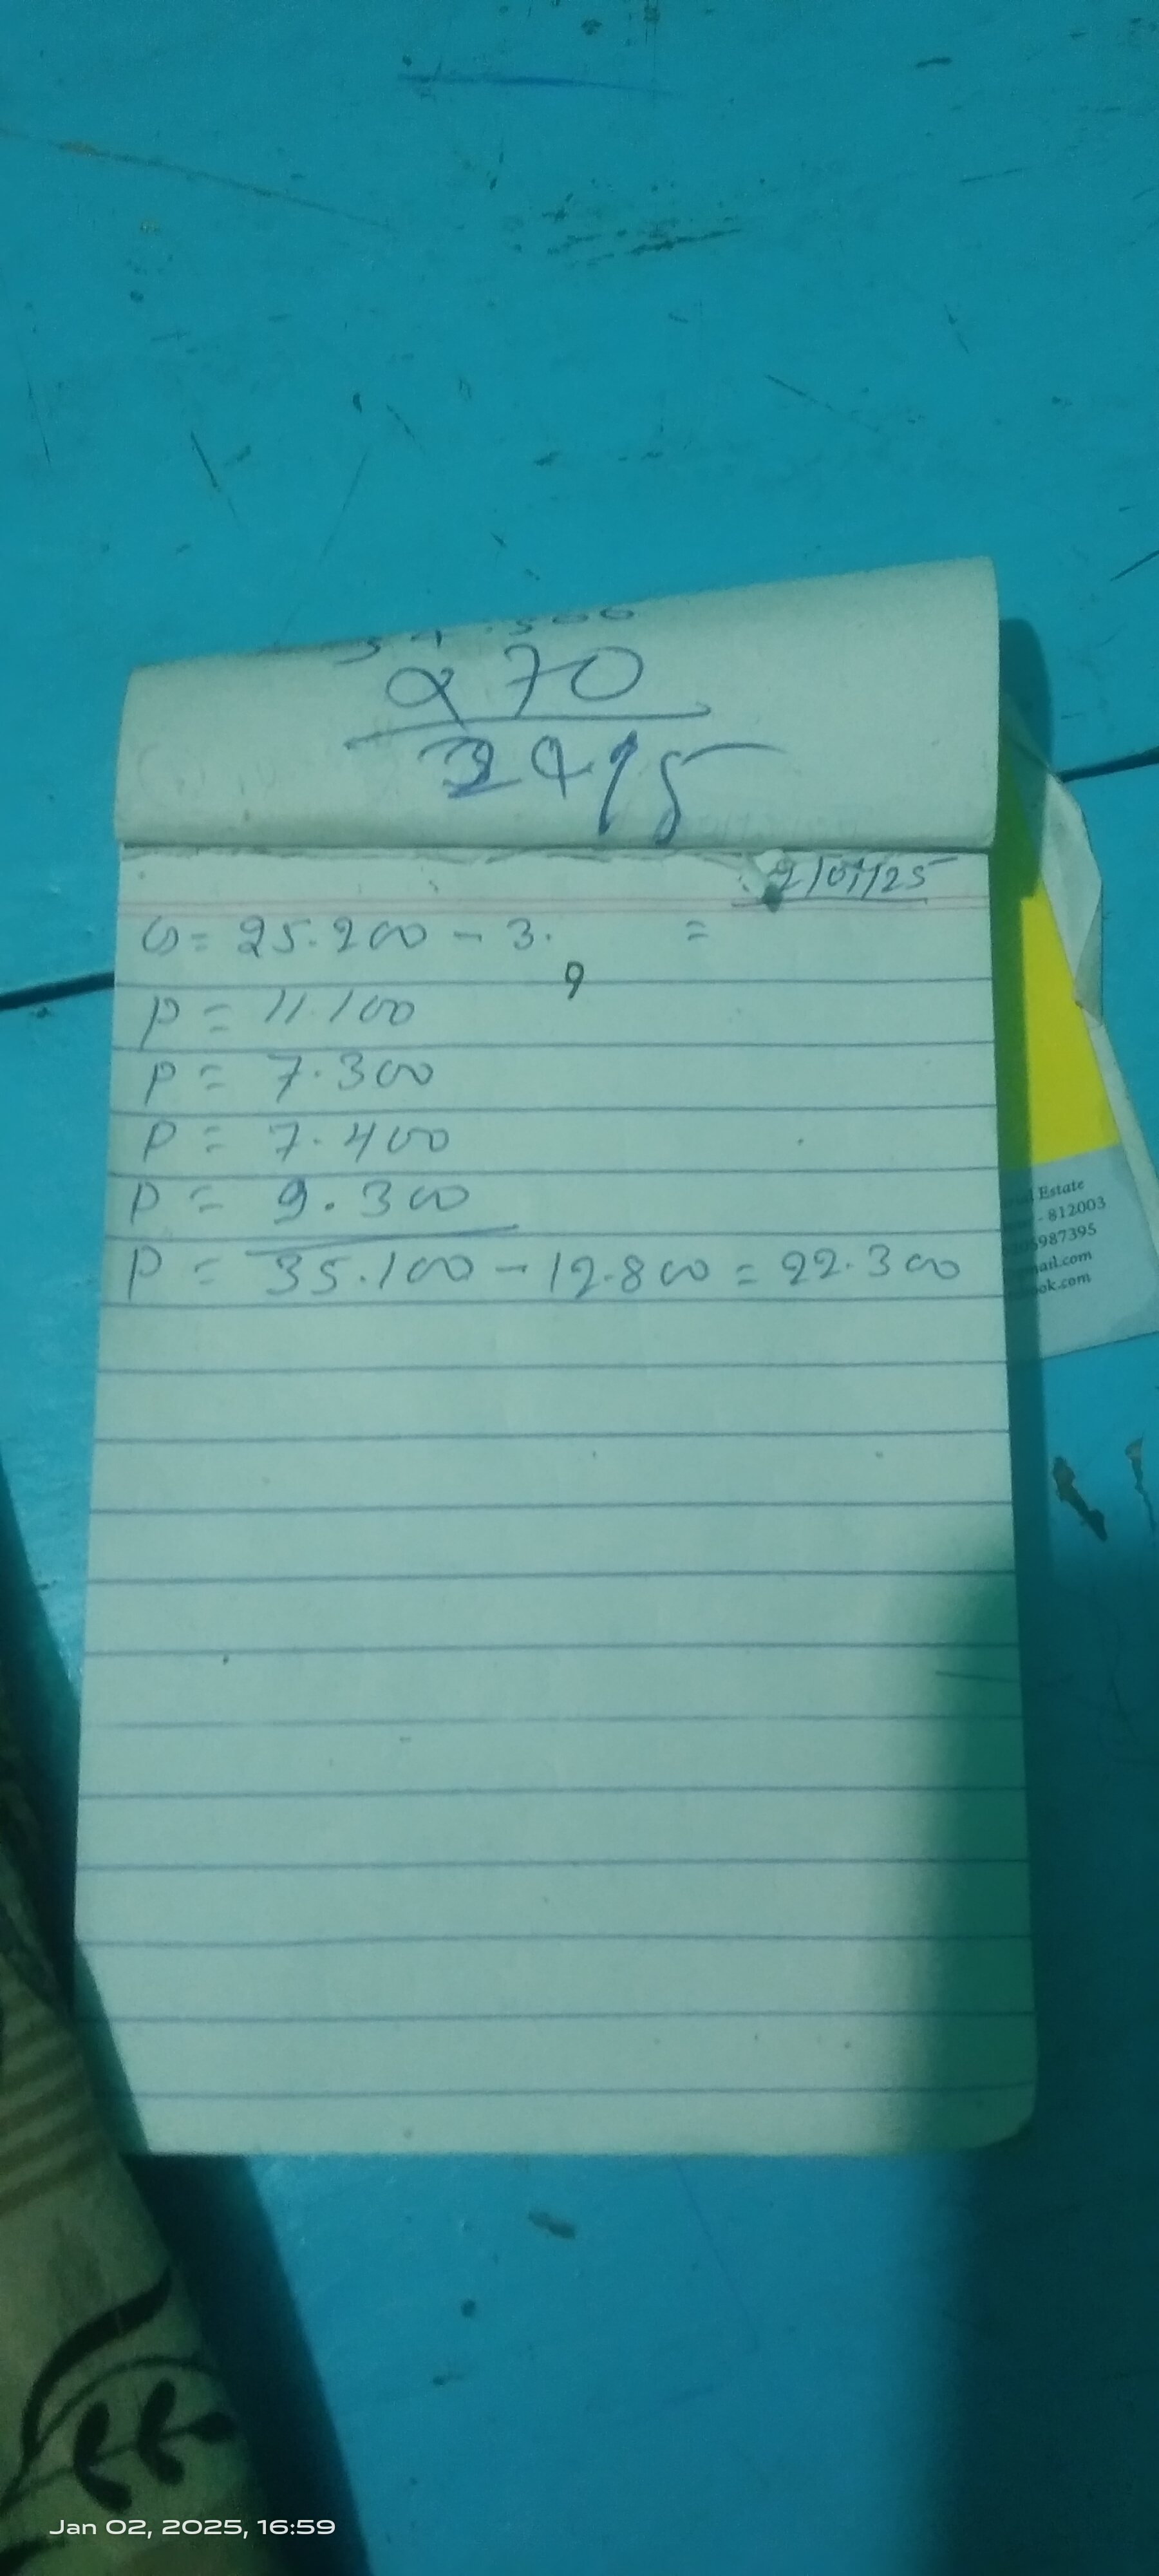 270
2495
2/01/25
G = 25.200 - 3. =
9
P = 11.100
P = 7.300
P = 7.400
P = 9.300
P = 35.100 - 12.800 = 22.300
Estate
- 812003
987395
ail.com
ok.com
Jan 02, 2025, 16:59